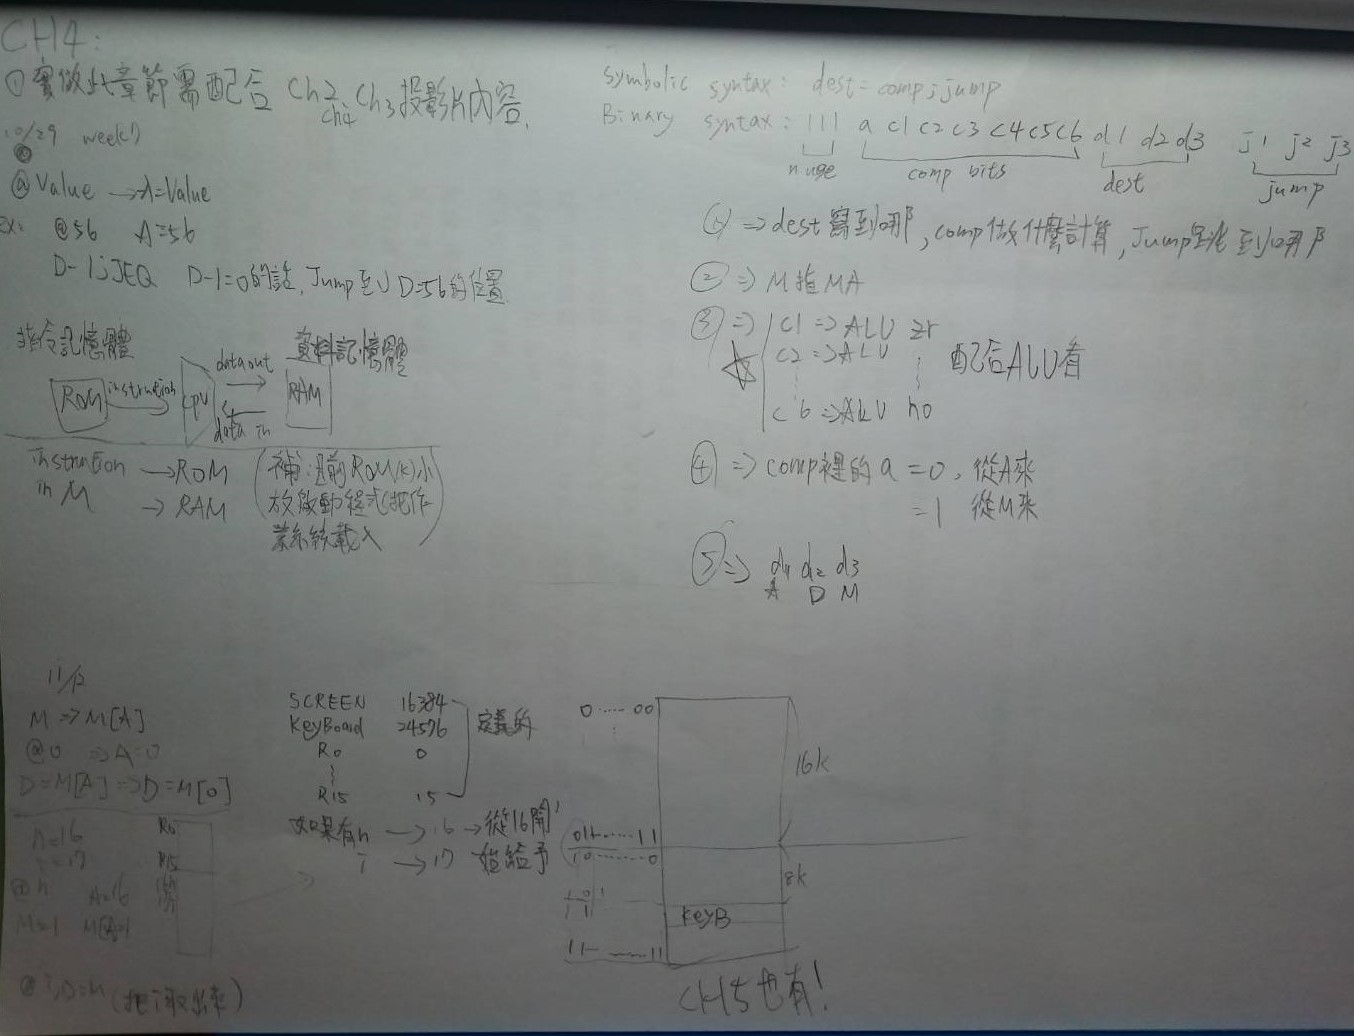 CH4:
①實做此章節需配合 Ch2、Ch3投影片內容.
ch4
10/29 week7
@Value →A=Value
Ex: @56 A=56
D-1;JEQ D-1=0的話,Jump至 D=56的位置
指令記憶體 資料記憶體
ROM instruction CPU data out RAM
data in
instruction →ROM
in M →RAM
(補:目前ROM(k)小
放啟動程式(把作
業系統載入)
Symbolic syntax: dest=comp;jump
Binary syntax: 111 a c1 c2 c3 c4 c5 c6 d1 d2 d3 j1 j2 j3
comp bits dest jump
① ⇒ dest 寫到哪, comp做什麼計算, Jump是跳到哪
② ⇒ M指MA
③ ⇒ c1 ⇒ ALU zr
c2 ⇒ ALU
配合ALU看
c6 ⇒ ALU no
④ ⇒ comp裡的 a =0, 從A來
=1 從M來
⑤ ⇒ d1 d2 d3
A D M
11/12
M ⇒ M[A]
@0 ⇒ A=0
D=M[A] ⇒ D=M[0]
A=16 R0
=17 R15
@n A=16
M=1
(把i取出來)
SCREEN 16384
KeyBoard 24576 定義的
R0 0
R15 15
如果有n → 16 → 從16開
i → 17 始給予
0......00
16k
01......11
10......0
8k
KeyB
11......11
CH5也有!